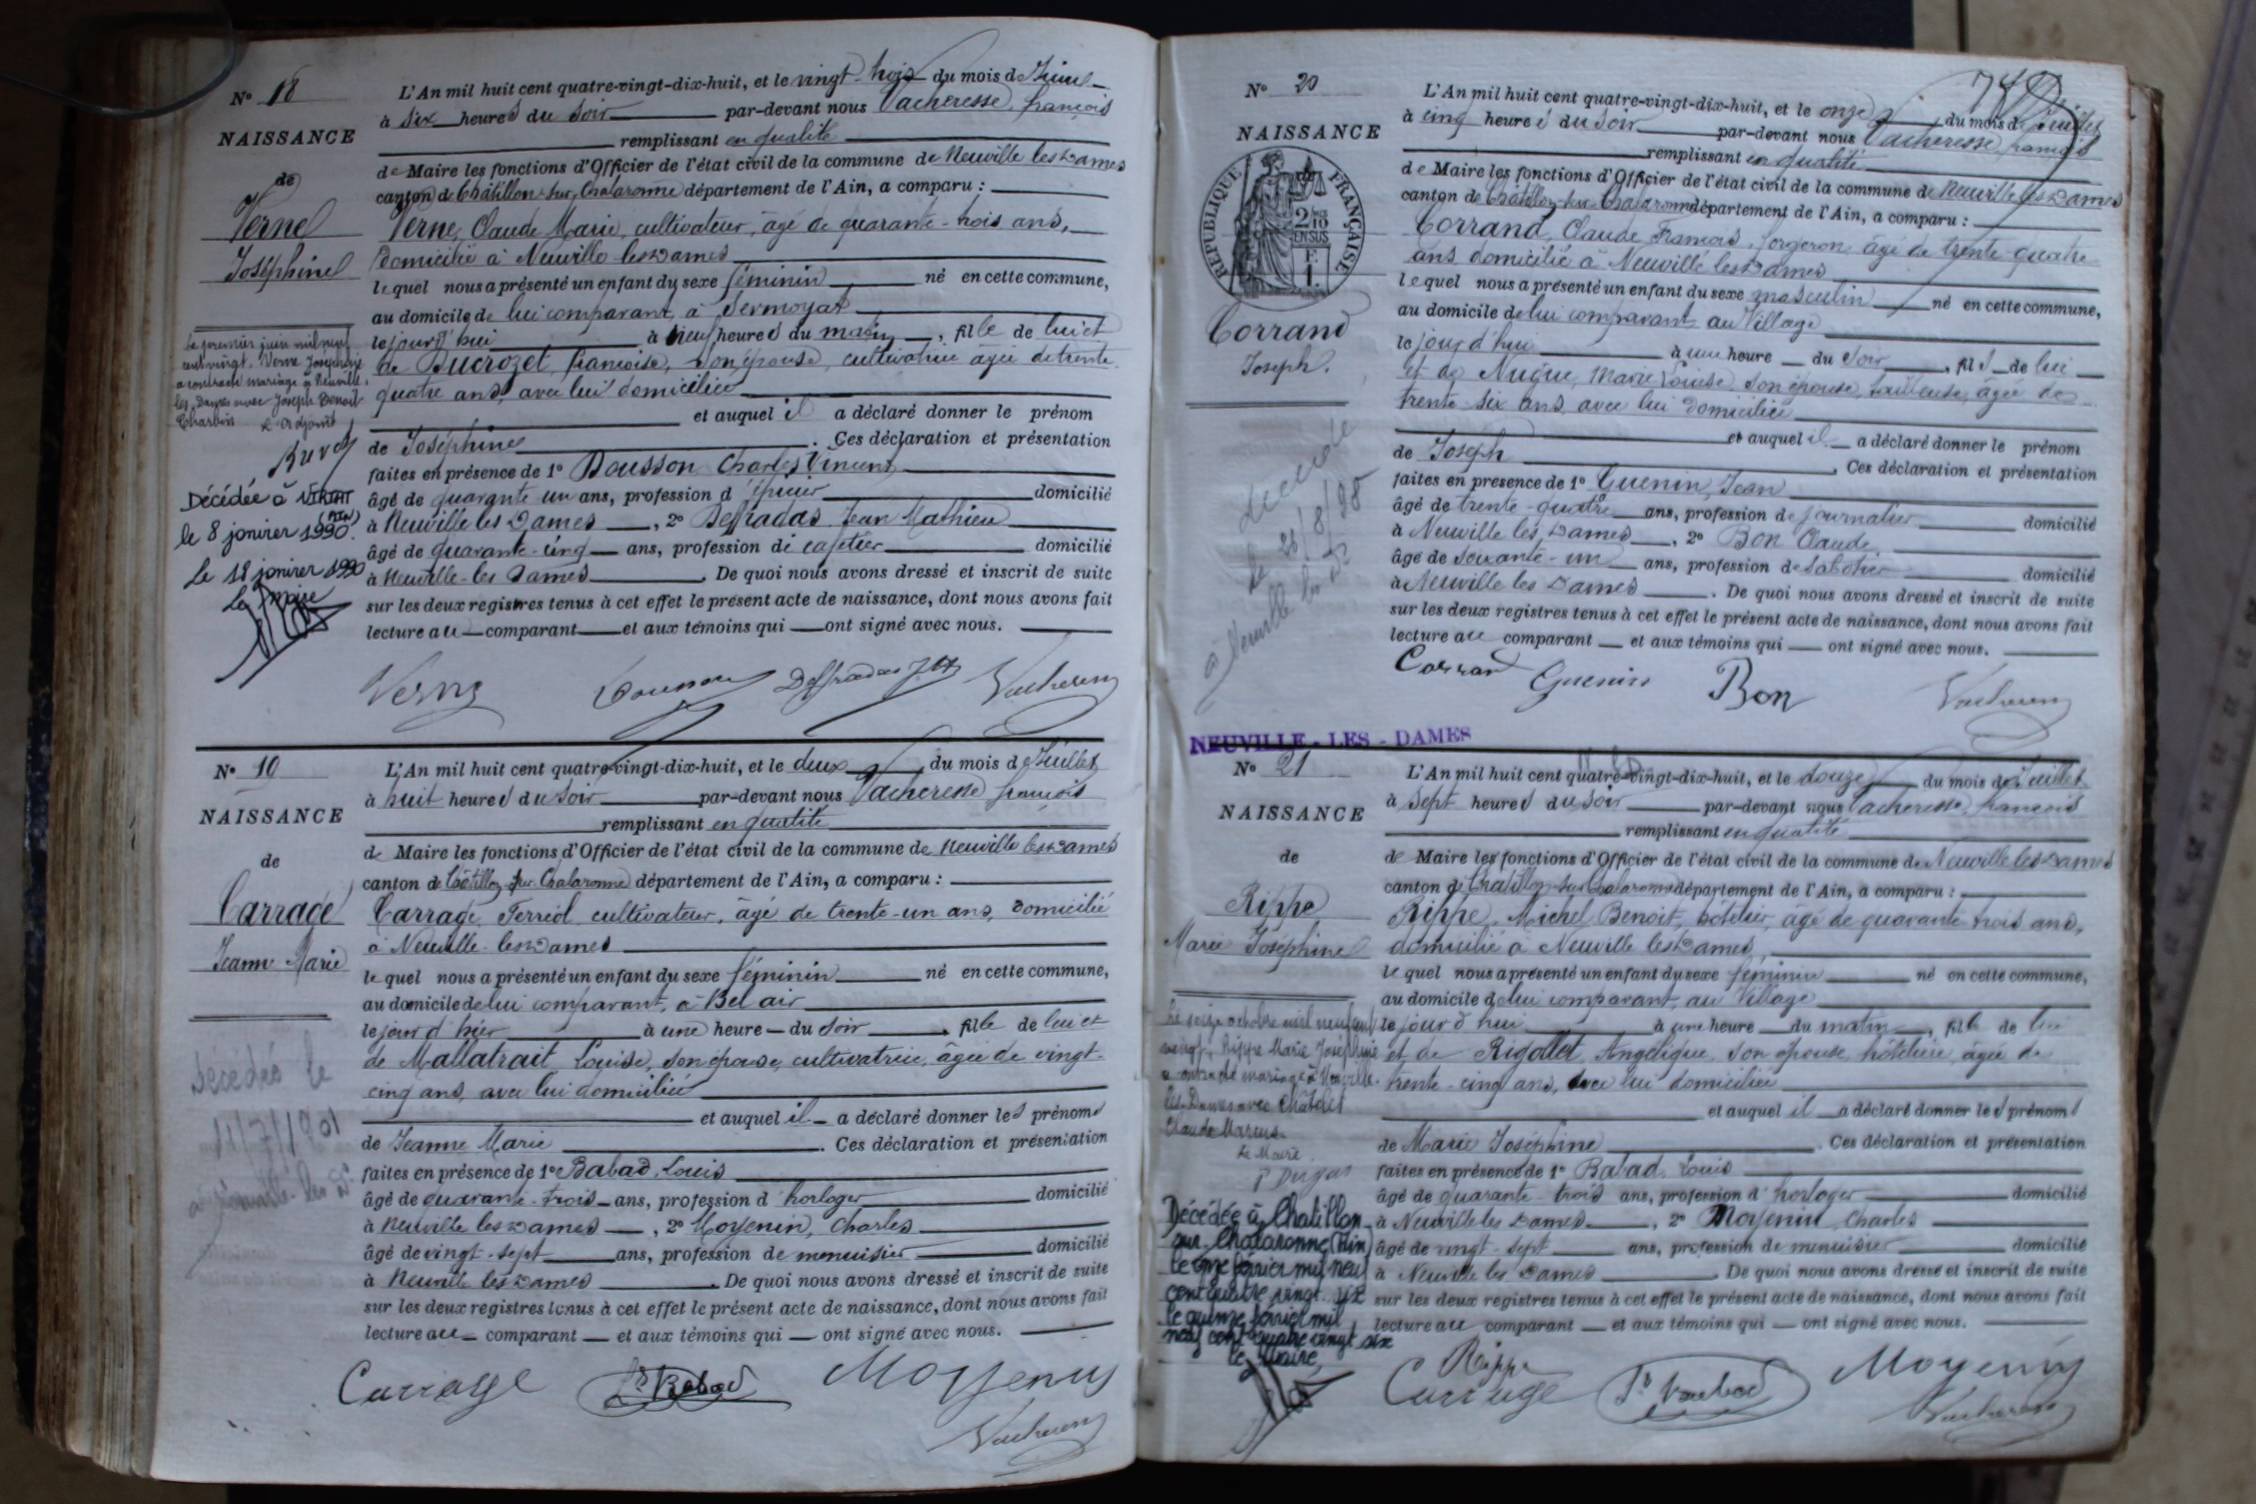 N° 18
NAISSANCE
de
Verne
Joséphine
Le premier juin mil neuf
cent vingt, Verne Joséphine
a contracté mariage à Neuville
les Dames avec Joseph Benoit
Charbon L'adjoint
Décédée à Viriat
(Ain)
le 8 janvier 1990.
Le 18 janvier 1990
Le Maire
L'An mil huit cent quatre-vingt-dix-huit, et le vingt-trois du mois de Juin
à six heures du soir par-devant nous Vacheresse, françois
remplissant en qualité
de Maire les fonctions d'Officier de l'état civil de la commune de Neuville les Dames
canton de Châtillon-sur-Chalaronne département de l'Ain, a comparu :
Verne, Claude Marie, cultivateur, âgé de quarante-trois ans,
domicilié à Neuville les Dames
lequel nous a présenté un enfant du sexe féminin né en cette commune,
au domicile de lui comparant, à Sermoyat
le jour d'hui à neuf heures du matin, fille de lui et
de Ducrozet, françoise, son épouse, cultivatrice âgée de trente
quatre ans, avec lui domiciliée
et auquel il a déclaré donner le prénom
de Joséphine. Ces déclaration et présentation
faites en présence de 1° Dousson Charles Vincent
âgé de quarante un ans, profession d'épicier domicilié
à Neuville les Dames, 2° Deffradas Jean Mathieu
âgé de quarante-cinq ans, profession de cafetier domicilié
à Neuville-les Dames. De quoi nous avons dressé et inscrit de suite
sur les deux registres tenus à cet effet le présent acte de naissance, dont nous avons fait
lecture au comparant et aux témoins qui ont signé avec nous.
Verne Dousson Deffradas J. M. Vacheresse
N° 19
NAISSANCE
de
Carrage
Jeanne Marie
Décédée le
11/7/1901
à Neuville-les-D
L'An mil huit cent quatre-vingt-dix-huit, et le deux du mois de Juillet
à huit heures du soir par-devant nous Vacheresse françois
remplissant en qualité
de Maire les fonctions d'Officier de l'état civil de la commune de Neuville les Dames
canton de Châtillon sur Chalaronne département de l'Ain, a comparu :
Carrage, Ferréol cultivateur, âgé de trente-un ans, domicilié
à Neuville-les Dames
lequel nous a présenté un enfant du sexe féminin né en cette commune,
au domicile de lui comparant, à Bel air
le jour d'hier à une heure du soir, fille de lui et
de Mallatrait Louise, son épouse, cultivatrice, âgée de vingt-
cinq ans, avec lui domiciliée
et auquel il a déclaré donner les prénoms
de Jeanne Marie. Ces déclaration et présentation
faites en présence de 1° Babad, Louis
âgé de quarante-trois ans, profession d'horloger domicilié
à Neuville les Dames, 2° Moyenin, Charles
âgé de vingt-sept ans, profession de menuisier domicilié
à Neuville les Dames. De quoi nous avons dressé et inscrit de suite
sur les deux registres tenus à cet effet le présent acte de naissance, dont nous avons fait
lecture au comparant et aux témoins qui ont signé avec nous.
Carrage Ls Babad Moyenin
Vacheresse
N° 20
NAISSANCE
de
RÉPUBLIQUE FRANÇAISE
2/10 EN SUS
F. 1.
Corrand
Joseph.
décédé
le 28/8/98
à Neuville les D
L'An mil huit cent quatre-vingt-dix-huit, et le onze du mois de Juillet
à cinq heures du soir par-devant nous Vacheresse, françois
remplissant en qualité
de Maire les fonctions d'Officier de l'état civil de la commune de Neuville les Dames
canton de Châtillon-sur-Chalaronne département de l'Ain, a comparu :
Corrand, Claude François, forgeron âgé de trente-quatre
ans domicilié à Neuville les Dames
lequel nous a présenté un enfant du sexe masculin né en cette commune,
au domicile de lui comparant au Village
le jour d'hui à une heure du soir, fils de lui
et de Nugue, Marie Louise, son épouse, tailleuse, âgée de
trente-six ans, avec lui domiciliée
et auquel il a déclaré donner le prénom
de Joseph. Ces déclaration et présentation
faites en présence de 1° Guenin, Jean
âgé de trente-quatre ans, profession de journalier domicilié
à Neuville les Dames, 2° Bon Claude
âgé de soixante-un ans, profession de sabotier domicilié
à Neuville les Dames. De quoi nous avons dressé et inscrit de suite
sur les deux registres tenus à cet effet le présent acte de naissance, dont nous avons fait
lecture au comparant et aux témoins qui ont signé avec nous.
Corrand Guenin Bon Vacheresse
NEUVILLE-LES-DAMES
N° 21
NAISSANCE
de
Rippe
Marie Joséphine
Le seize octobre mil neuf cent
vingt, Rippe Marie Joséphine
a contracté mariage à Neuville-
les-Dames avec Châtelet
Claude Marcus.
Le Maire.
Décédée à Chatillon
sur Chalaronne (Ain)
le onze février mil neuf
cent quatre vingt six
le quinze février mil
neuf cent quatre vingt six
le Maire,
L'An mil huit cent quatre-vingt-dix-huit, et le douze du mois de Juillet
à sept heures du soir par-devant nous Vacheresse, françois
remplissant en qualité
de Maire les fonctions d'Officier de l'état civil de la commune de Neuville les Dames
canton de Châtillon-sur-Chalaronne département de l'Ain, a comparu :
Rippe, Michel Benoit, hôtelier, âgé de quarante trois ans,
domicilié à Neuville les Dames
lequel nous a présenté un enfant du sexe féminin né en cette commune,
au domicile de lui comparant, au Village
le jour d'hui à une heure du matin, fille de lui
et de Rigollet, Angélique, son épouse, hôtelière, âgée de
trente-cinq ans, avec lui domiciliée
et auquel il a déclaré donner les prénoms
de Marie Joséphine. Ces déclaration et présentation
faites en présence de 1° Babad, Louis
âgé de quarante-trois ans, profession d'horloger domicilié
à Neuville les Dames, 2° Moyenin Charles
âgé de vingt-sept ans, profession de menuisier domicilié
à Neuville les Dames. De quoi nous avons dressé et inscrit de suite
sur les deux registres tenus à cet effet le présent acte de naissance, dont nous avons fait
lecture au comparant et aux témoins qui ont signé avec nous.
Rippe
Carrage Ls Babad Moyenin
Vacheresse